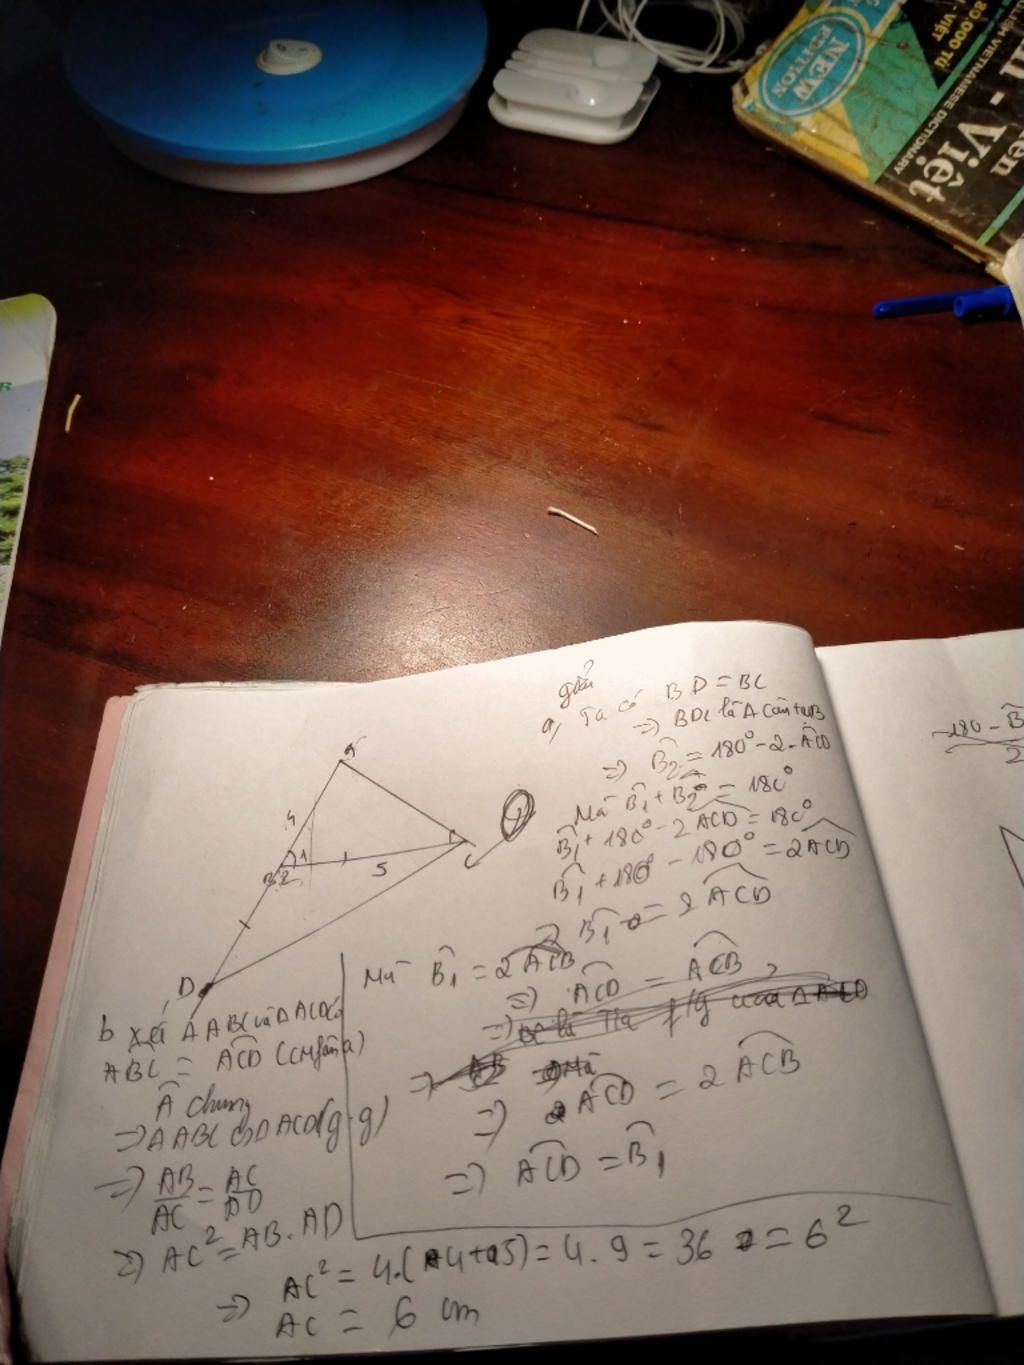 NEW
EDITION
80.000 TỪ
VIỆT
VIETNAMESE DICTIONARY
Việt
R
giải
a, Ta có BD = BC
=> BDC là Δ cân tại B
=> B2 = 180° - 2. ACD
Mà B1 + B2 = 180°
B1 + 180° - 2 ACD = 180°
B1 + 180° - 180° = 2ACD
=> B1 = 2 ACD
Mà B1 = 2 ACB
=> ACD = ACB
=> 2 ACD = 2 ACB
=> ACD = B1
A
4
B
2
1
5
C
D
b Xét Δ ABC và Δ ACD có
ABC = ACD (CM phần a)
A chung
=> Δ ABC ∽ Δ ACD (g.g)
=> AB/AC = AC/AD
=> AC² = AB. AD
=> AC² = 4.(4+5) = 4.9 = 36 = 6²
AC = 6 cm
180 - B
2